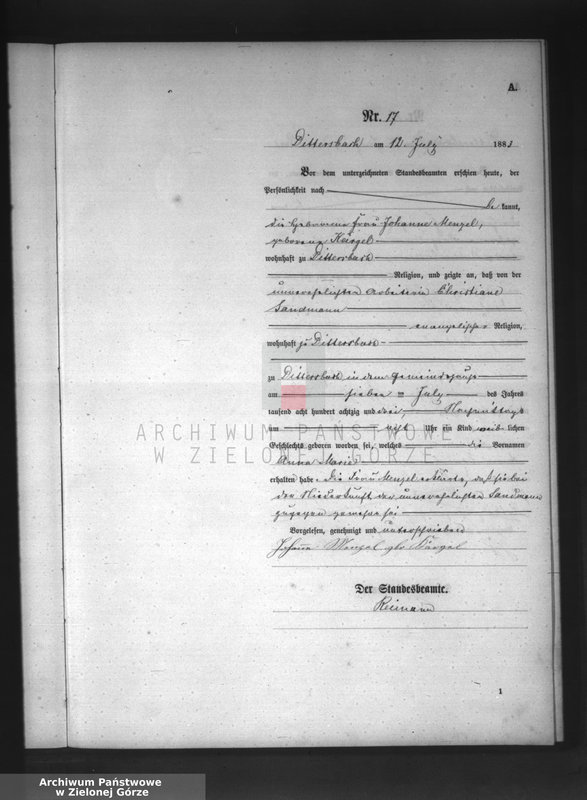 A.
Nr. 17
Dittersbach am 12. July 1883
Vor dem unterzeichneten Standesbeamten erschien heute, der
Persönlichkeit nach
be kannt,
die Hebamme Frau Johanne Menzel,
geborene Kärgel
wohnhaft zu Dittersbach
Religion, und zeigte an, daß von der
unverehelichten Arbeiterin Christiane
Sandmann
evangelischer Religion,
wohnhaft zu Dittersbach
zu Dittersbach in dem Gemeindehause
am sieben = July des Jahres
tausend acht hundert achtzig und drei, Nachmittags
um acht Uhr ein Kind weib lichen
Geschlechts geboren worden sei, welches die Vornamen
Anna Marie
erhalten habe. Die Frau Menzel erklärte, daß sie bei
der Niederkunft der unverehelichten Sandmann
zugegen gewesen sei
Vorgelesen, genehmigt und unterschrieben
Menzel geb Kärgel
Der Standesbeamte.
Reimann
1
ARCHIWUM PAŃSTWOWE
W ZIELONEJ GÓRZE
Archiwum Państwowe
w Zielonej Górze